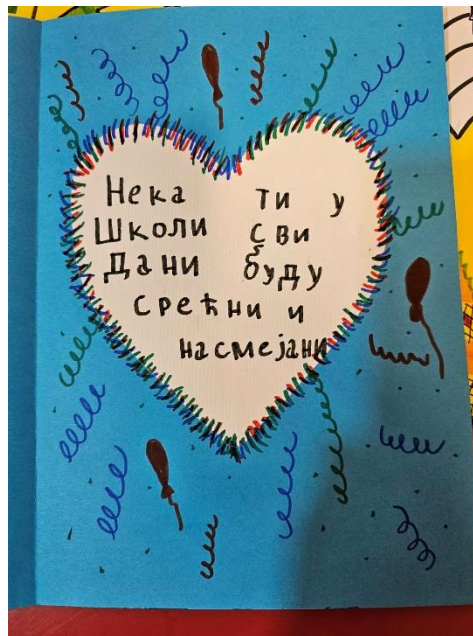 Нека ти у
Школи сви
Дани буду
срећни и
насмејани